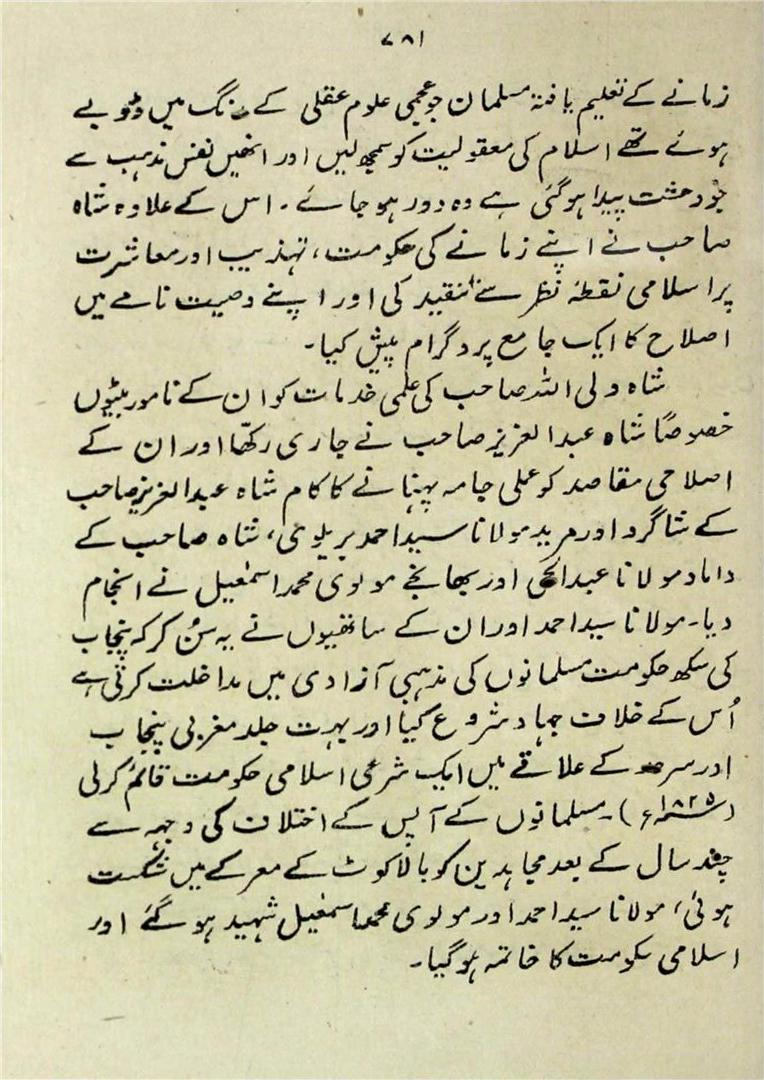 ۷۸۱
زمانے کے تعلیم یافتہ مسلمان جو عجمی علوم عقلی کے رنگ میں ڈوبے
ہوئے تھے اسلام کی معقولیت کو سمجھ لیں اور انھیں نفس مذہب سے
جو وحشت پیدا ہوگئی ہے وہ دور ہو جائے۔ اس کے علاوہ شاہ
صاحب نے اپنے زمانے کی حکومت، تہذیب اور معاشرت
پر اسلامی نقطۂ نظر سے تنقید کی اور اپنے وصیت نامے میں
اصلاح کا ایک جامع پروگرام پیش کیا۔
شاہ ولی اللہ صاحب کی علمی خدمات کو ان کے نامور بیٹوں
خصوصًا شاہ عبدالعزیز صاحب نے جاری رکھا اور ان کے
اصلاحی مقاصد کو عملی جامہ پہنانے کا کام شاہ عبدالعزیز صاحب
کے شاگرد اور مرید مولانا سید احمد بریلوی، شاہ صاحب کے
داماد مولانا عبدالحیٔ اور بھانجے مولوی محمد اسمٰعیل نے انجام
دیا۔ مولانا سید احمد اور ان کے ساتھیوں نے یہ سُن کر کہ پنجاب
کی سکھ حکومت مسلمانوں کی مذہبی آزادی میں مداخلت کرتی ہے
اُس کے خلاف جہاد شروع کیا اور بہت جلد مغربی پنجاب
اور سرحد کے علاقے میں ایک شرعی اسلامی حکومت قائم کرلی
(۱۸۲۵ء)۔ مسلمانوں کے آپس کے اختلاف کی وجہ سے
چند سال کے بعد مجاہدین کو بالاکوٹ کے معرکے میں شکست
ہوئی، مولانا سید احمد اور مولوی محمد اسمٰعیل شہید ہوگئے اور
اسلامی حکومت کا خاتمہ ہوگیا۔